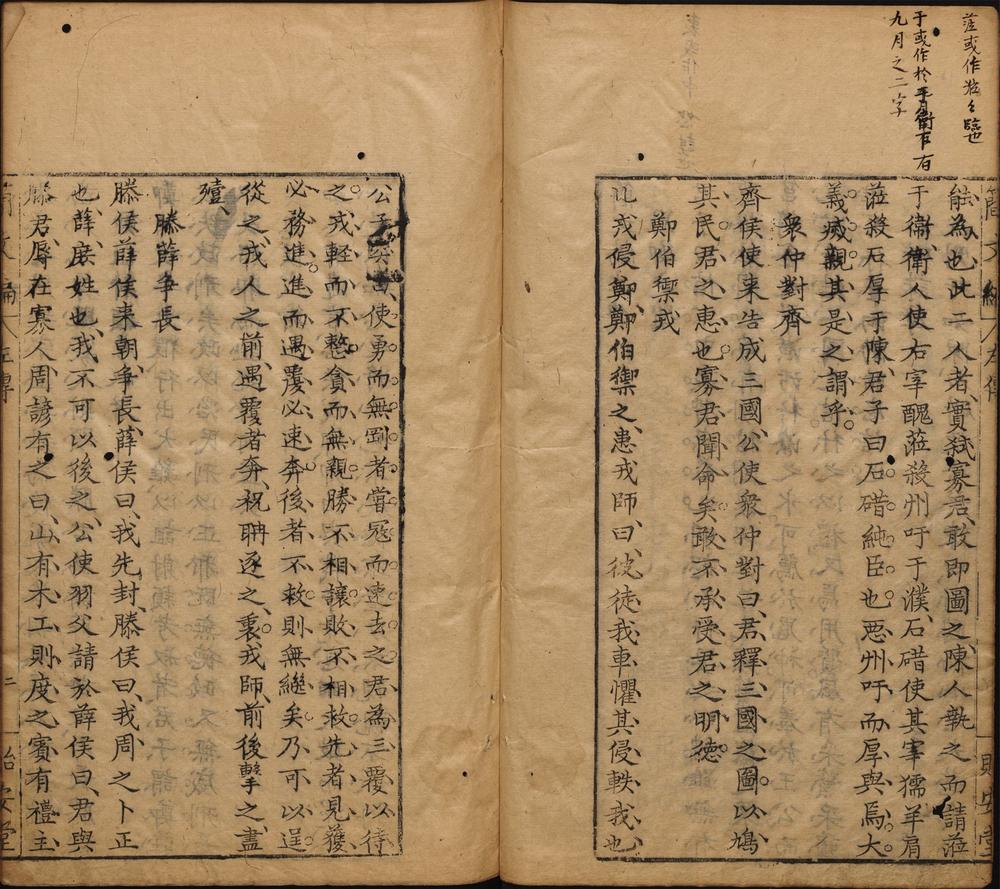 蒞或作涖々臨也
于或作於
九月之二字
能為也此二人者實弒寡君敢即圖之陳人執之而請蒞
于衛衛人使右宰醜蒞殺州吁于濮石碏使其宰獳羊肩
蒞殺石厚于陳君子曰石碏純臣也惡州吁而厚與焉大
義滅親其是之謂乎
衆仲對齊
齊侯使來告成三國公使衆仲對曰君釋三國之圖以鳩
其民君之惠也寡君聞命矣敢不承受君之明德
鄭伯禦戎
北戎侵鄭鄭伯禦之患戎師曰彼徒我車懼其侵軼我也
公子突曰使勇而無剛者嘗寇而速去之君為三覆以待
之戎輕而不整貪而無親勝不相讓敗不相救先者見獲
必務進進而遇覆必速奔後者不救則無繼矣乃可以逞
從之戎人之前遇覆者奔祝聃逐之衷戎師前後擊之盡
殪
滕薛爭長
滕侯薛侯來朝爭長薛侯曰我先封滕侯曰我周之卜正
也薛庶姓也我不可以後之公使羽父請於薛侯曰君與
滕君辱在寡人周諺有之曰山有木工則度之賓有禮主
二